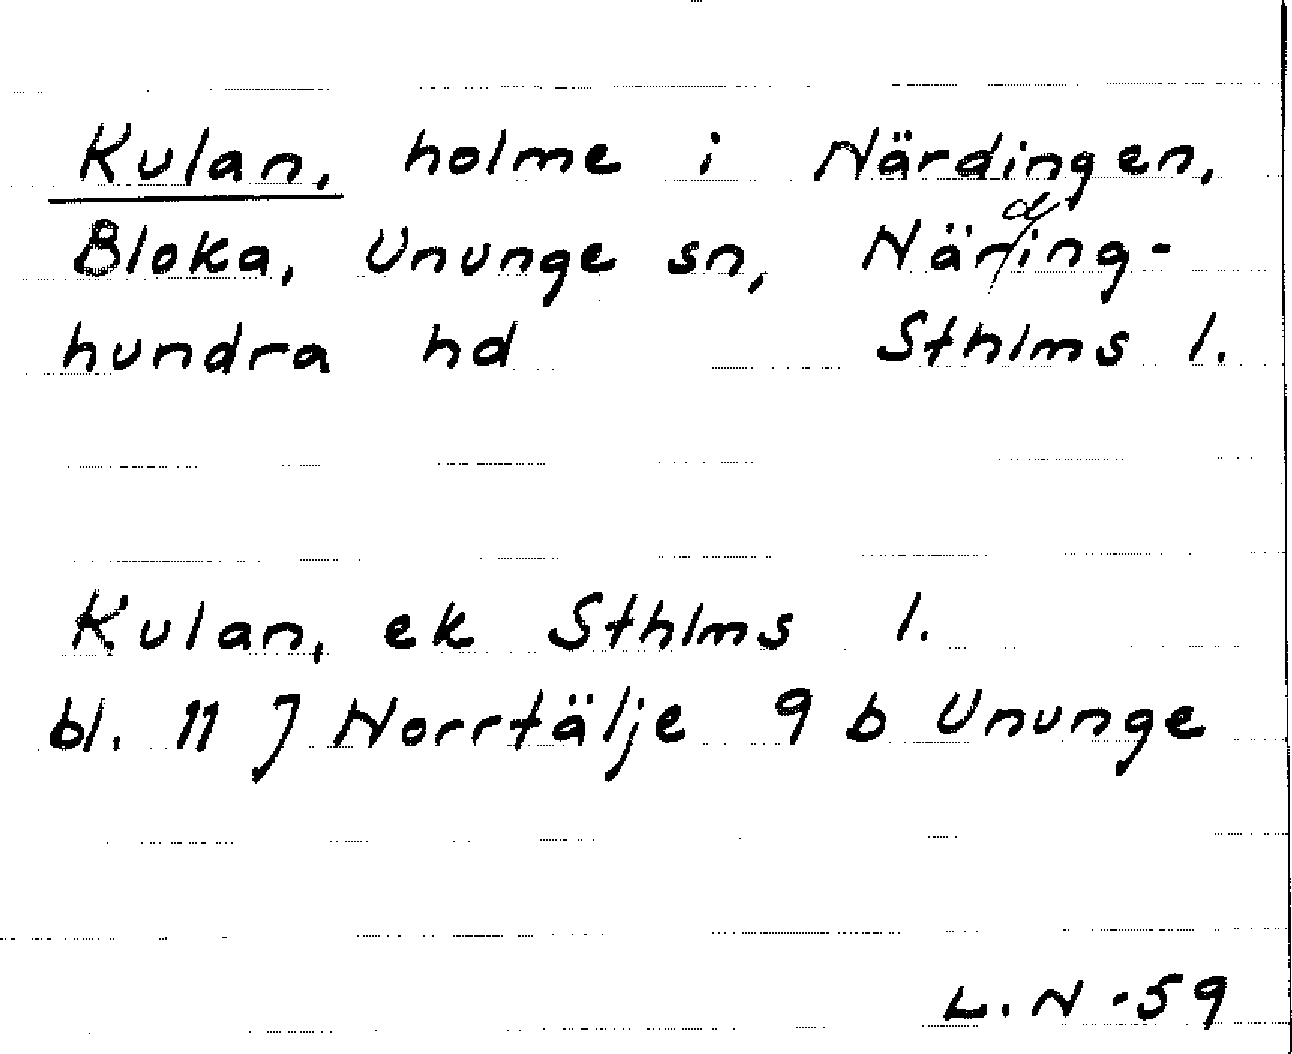 Kulan, holme i Närdingen,
Bloka, Ununge sn, Närding-
hundra hd Sthlms l.
Kulan, ek Sthlms l.
bl. 11 J Norrtälje 9 b Ununge
L. N -59